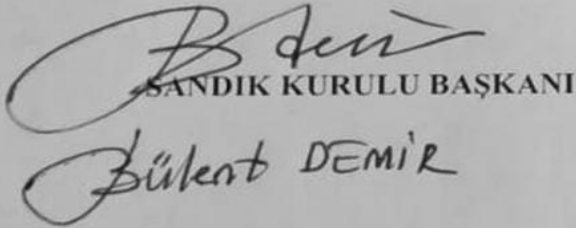 SANDIK KURULU BAŞKANI
Bülent DEMİR